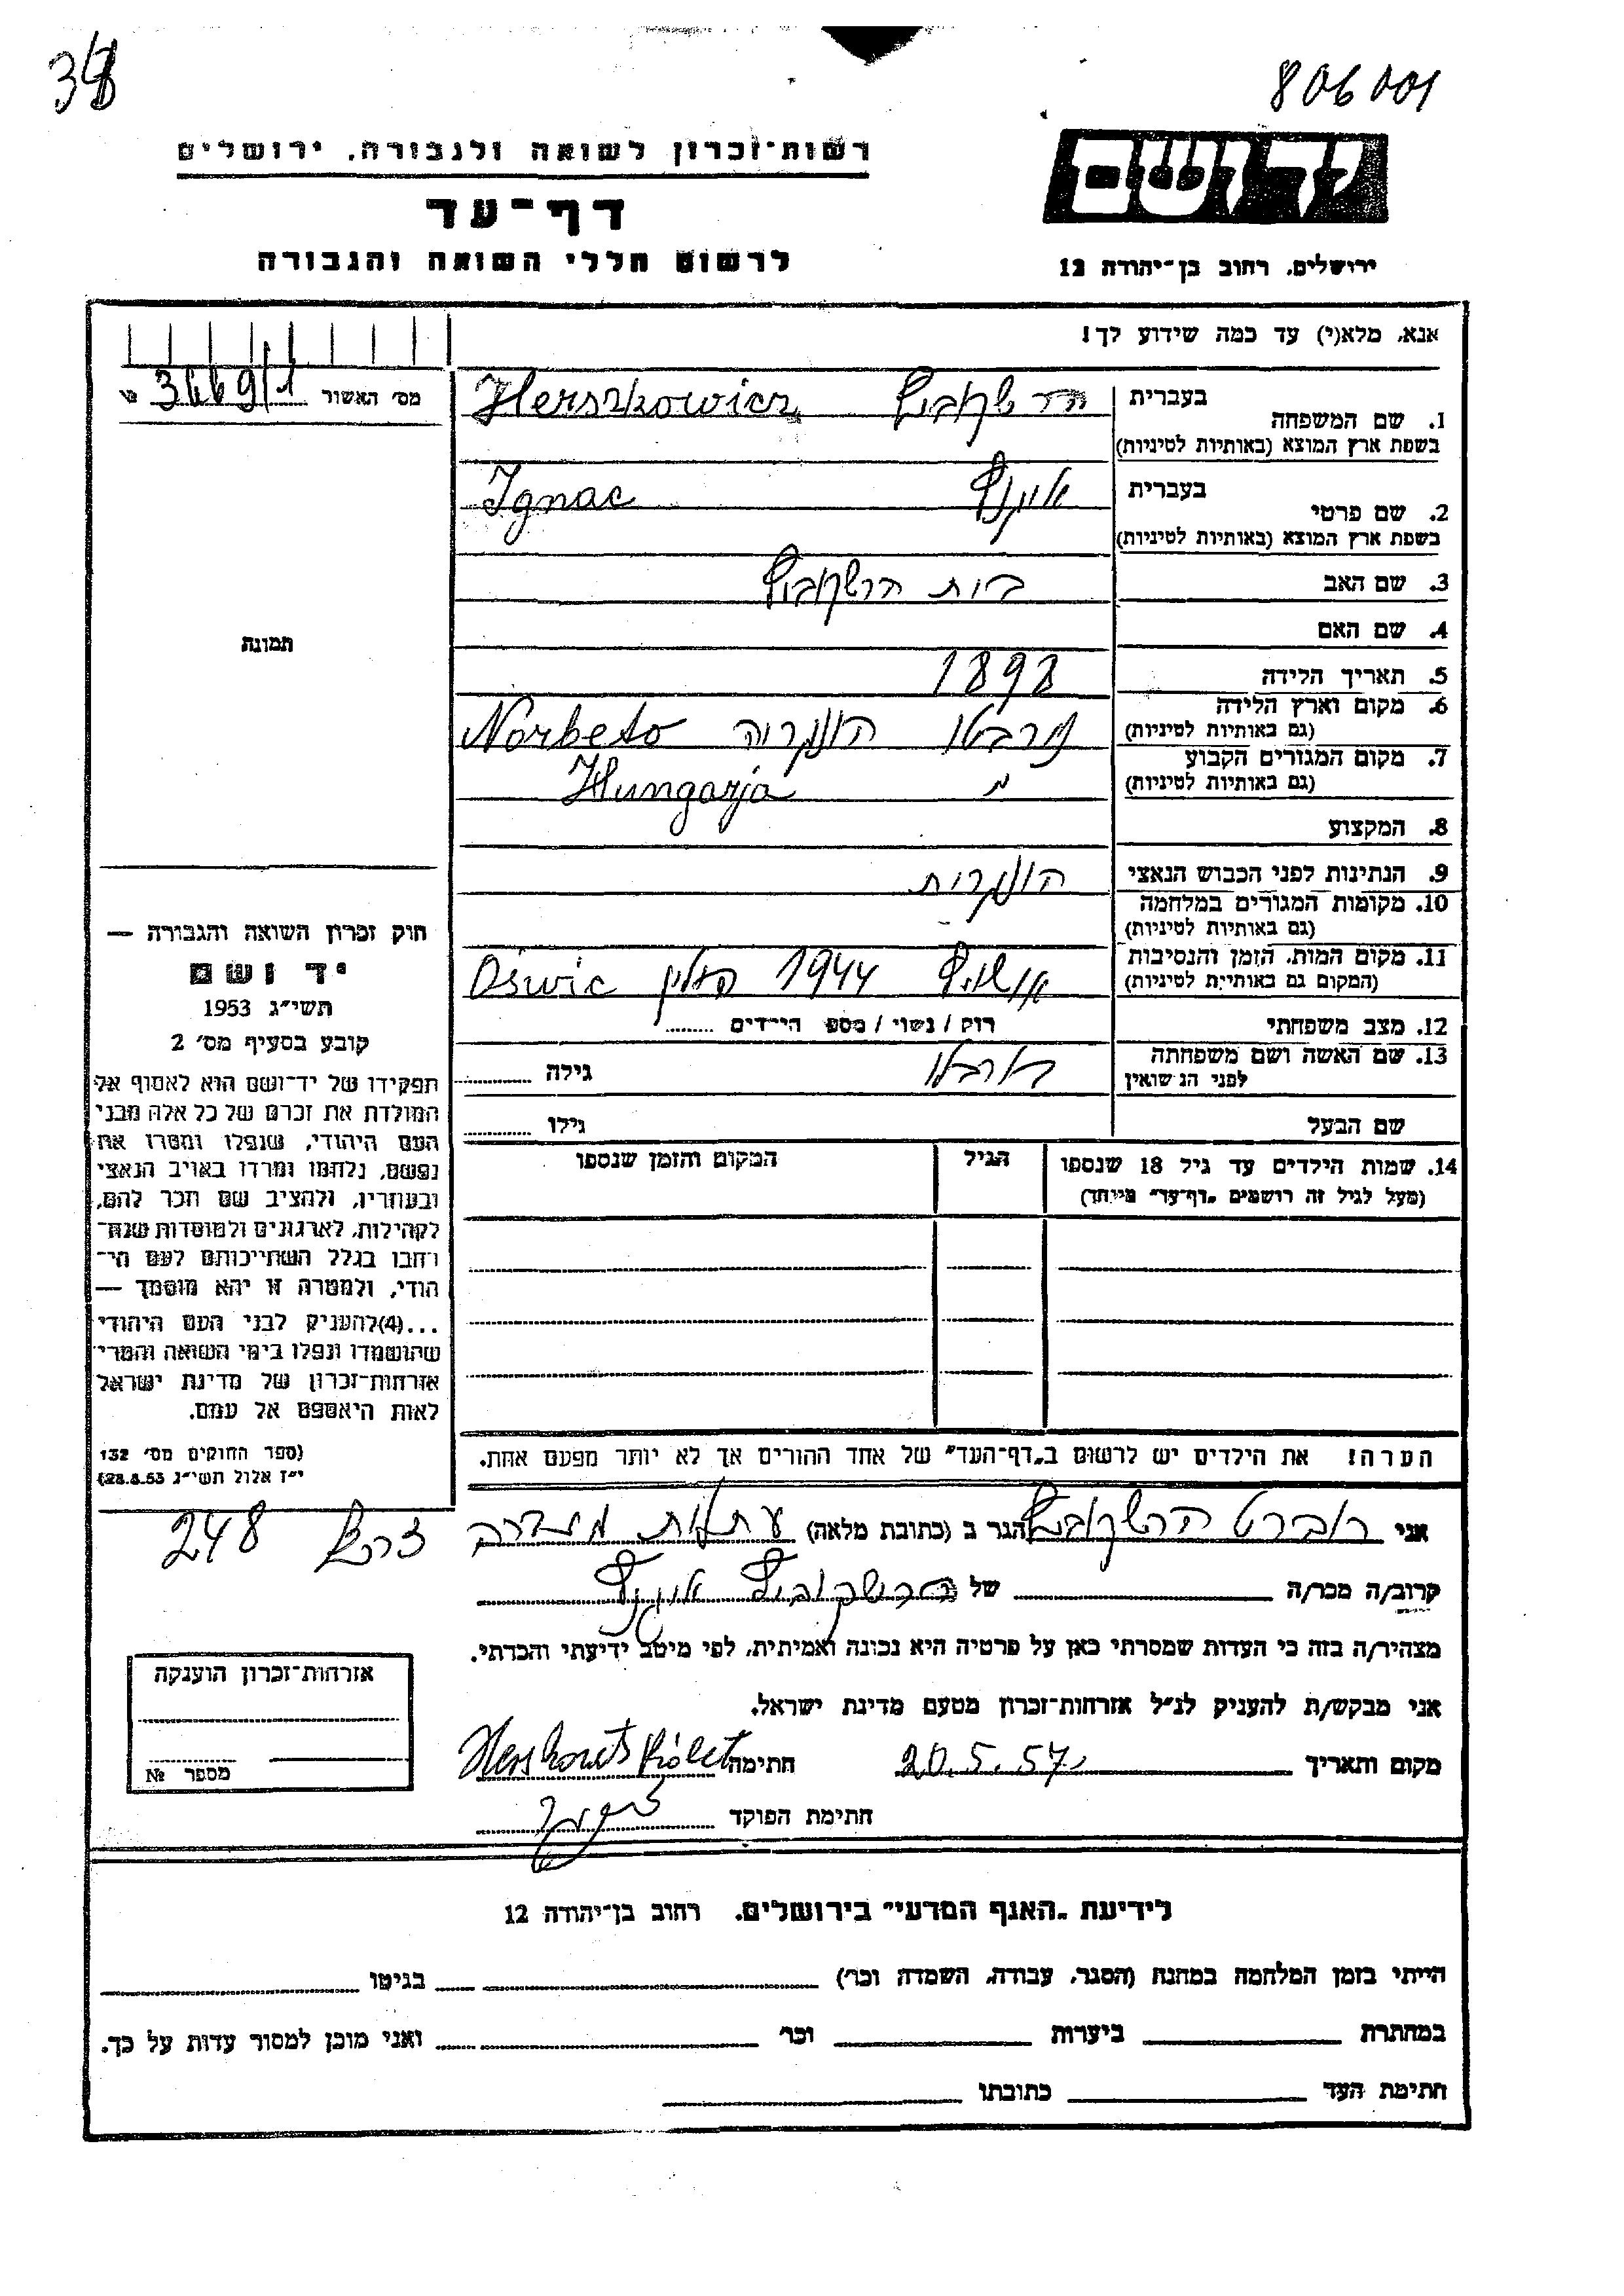 38
806001
רשות־זכרון לשואה ולגבורה, ירושלים
יד ושם
דף־עד
לרשום חללי השואה והגבורה
ירושלים, רחוב בן־יהודה 12
אנא, מלא(י) עד כמה שידוע לך!
מס׳ האשור 3669/1
1. שם המשפחה
בעברית הרשקוביץ
בשפת ארץ המוצא (באותיות לטיניות) Herszkowicz
2. שם פרטי
בעברית איגנץ
בשפת ארץ המוצא (באותיות לטיניות) Ignac
3. שם האב הרשקוביץ
4. שם האם
תמונה
5. תאריך הלידה 1898
6. מקום וארץ הלידה
(גם באותיות לטיניות) הונגריה Norbeto
7. מקום המגורים הקבוע
(גם באותיות לטיניות) Hungarja
8. המקצוע
9. הנתינות לפני הכבוש הנאצי הונגרית
10. מקומות המגורים במלחמה
(גם באותיות לטיניות)
11. מקום המות, הזמן והנסיבות
(המקום גם באותיות לטיניות) אושויץ 1944 Oświc
12. מצב משפחתי רוק / נשוי / מספ הילדים
13. שם האשה ושם משפחתה
לפני הנישואין גילה
שם הבעל גילו
14. שמות הילדים עד גיל 18 שנספו
(מעל לגיל זה רושמים „דף־עד" מיוחד)
הגיל
המקום והזמן שנספו
חוק זכרון השואה והגבורה —
יד ושם
תשי״ג 1953
קובע בסעיף מס׳ 2
תפקידו של יד־ושם הוא לאסוף אל
המולדת את זכרם של כל אלה מבני
העם היהודי, שנפלו ומסרו את
נפשם, נלחמו ומרדו באויב הנאצי
ובעוזריו, ולהציב שם וזכר להם,
לקהילות, לארגונים ולמוסדות שנח־
רחבו בגלל השתייכותם לעם הי־
הודי, ולמטרה זו יהא מוסמך —
...(4)להעניק לבני העם היהודי
שהושמדו ונפלו בימי השואה והמרי
אזרחות־זכרון של מדינת ישראל
לאות היאספם אל עמם.
(ספר החוקים מס׳ 132
י״ז אלול תשי״ג 28.8.53)
הערה! את הילדים יש לרשום ב„דף־העד" של אחד ההורים אך לא יותר מפעם אחת.
אני רוברט הרשקוביץ הגר ב (כתובת מלאה) עתלית
248
קרוב/ה מכר/ה של הרשקוביץ איגנץ
מצהיר/ה בזה כי העדות שמסרתי כאן על פרטיה היא נכונה ואמיתית, לפי מיטב ידיעתי והכרתי.
אני מבקש/ת להעניק לנ״ל אזרחות־זכרון מטעם מדינת ישראל.
מקום ותאריך 20.5.57 חתימה
חתימת הפוקד
אזרחות־זכרון הוענקה
מספר №
לידיעת „האגף המדעי" בירושלים, רחוב בן־יהודה 12
הייתי בזמן המלחמה במחנה (הסגר, עבודה, השמדה וכר׳) בגיטו
במחתרת ביערות וכר׳ ואני מוכן למסור עדות על כך.
חתימת העד כתובתו